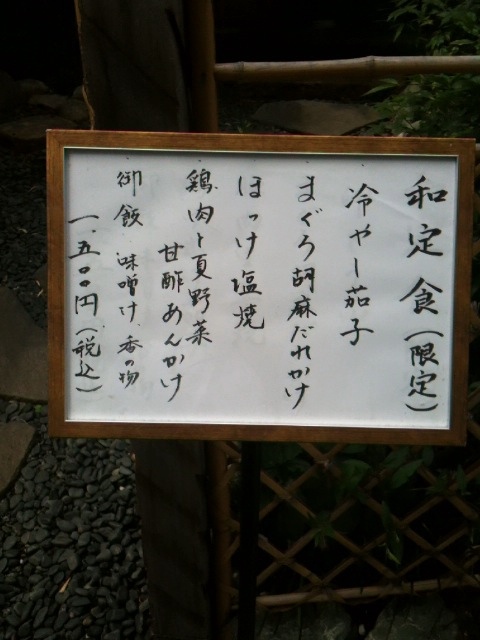 和定食(限定)
冷やし茄子
まぐろ胡麻だれかけ
ほっけ塩焼
鶏肉と夏野菜
甘酢あんかけ
御飯 味噌汁 香の物
一、五〇〇円(税込)